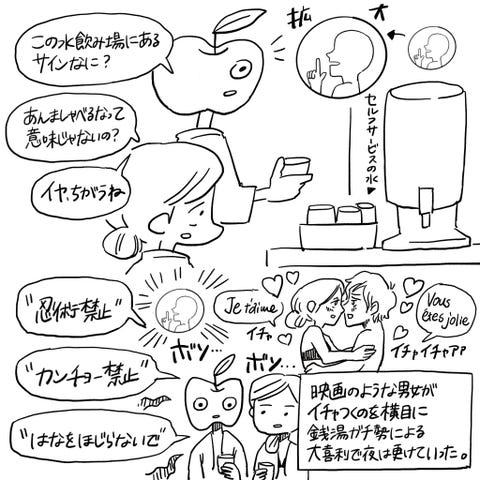 この水飲み場にある
サインなに？
拡
大
セルフサービスの水
あんましゃべるなって
意味じゃないの？
イヤ、ちがうね
"忍術禁止"
Je t'aime
イチャ
Vous
êtes jolie
イチャイチャアア
"カンチョー禁止"
ボソ…
ボソ…
"はなをほじらないで"
映画のような男女が
イチャつくのを横目に
銭湯ガチ勢による
大喜利で夜は更けていった。